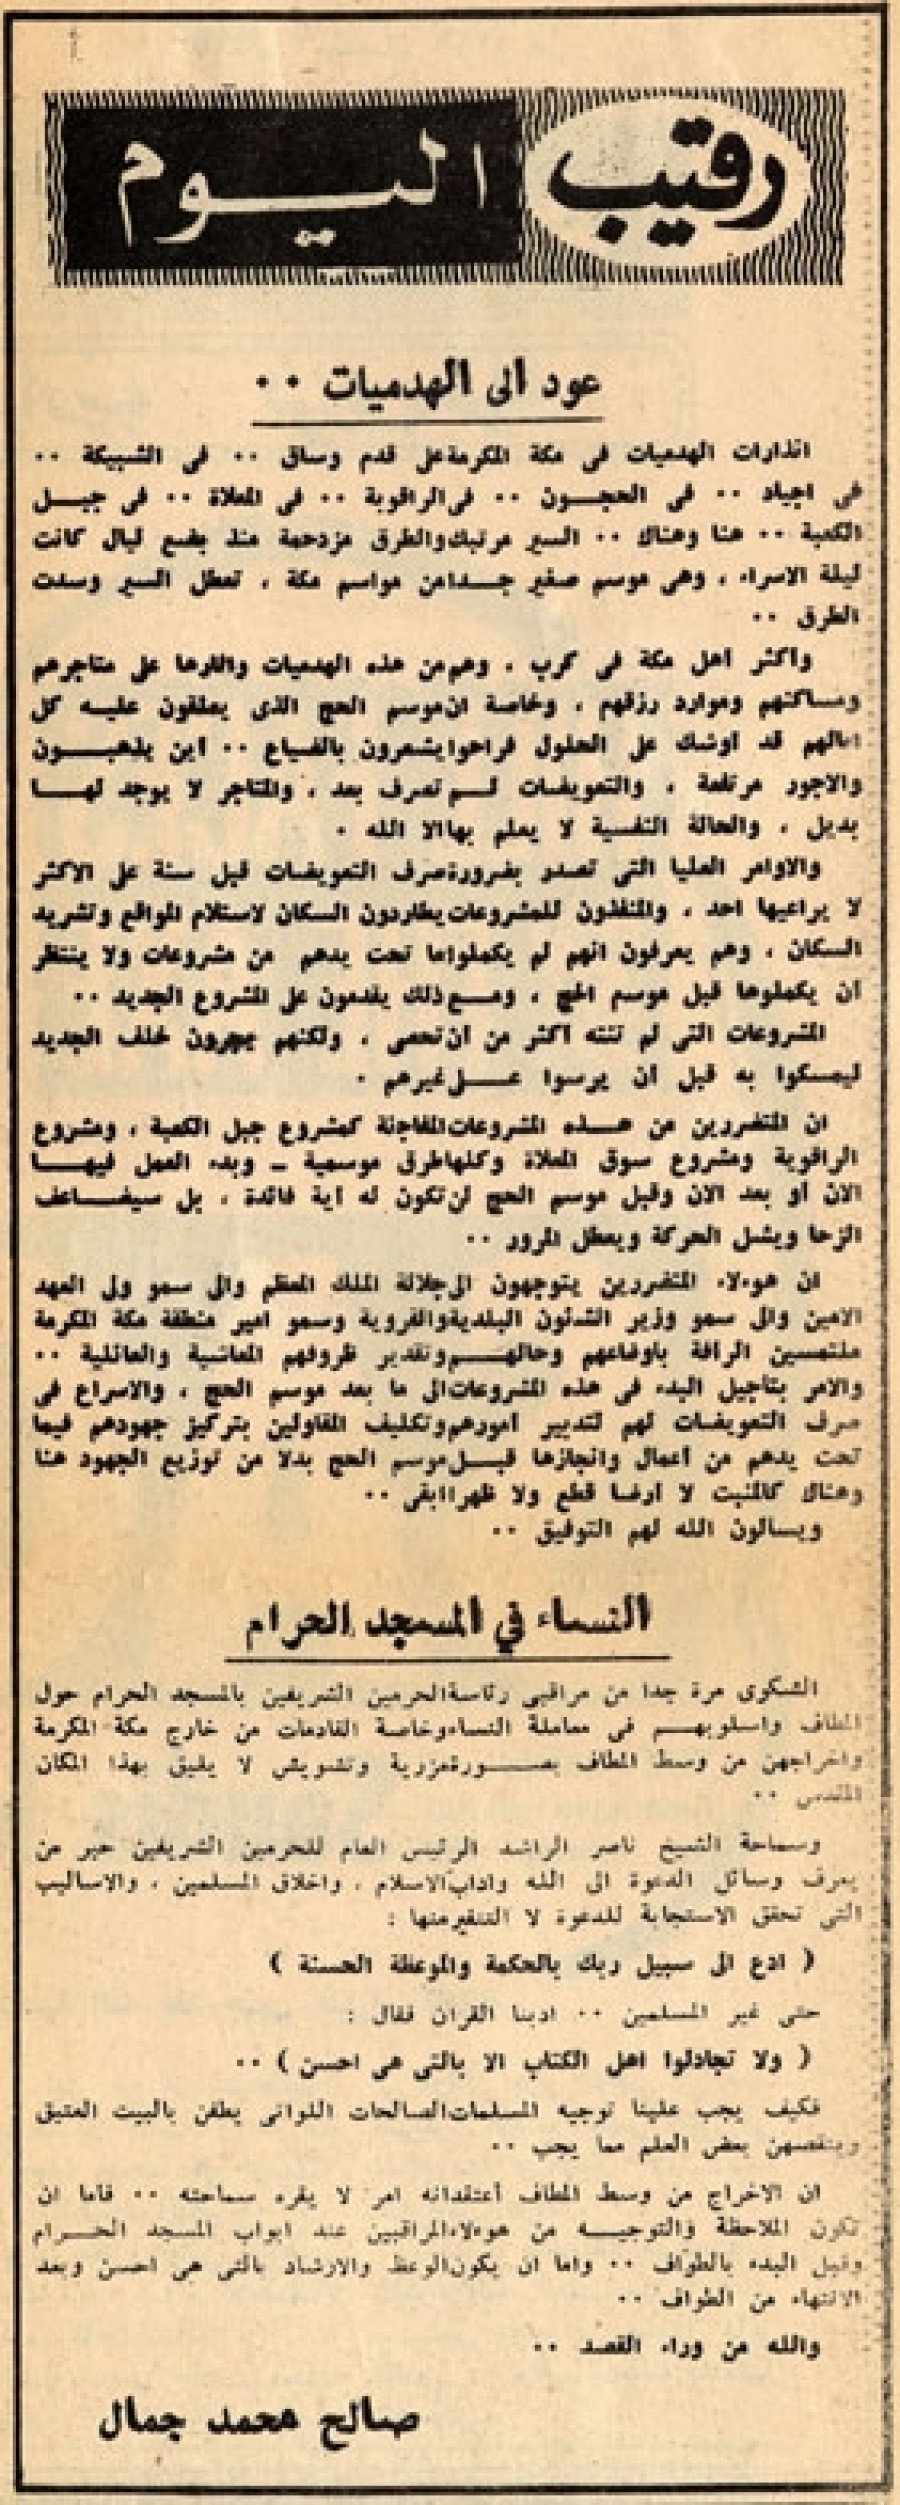 رقيب اليوم
عود الى الهدميات ..
انذارات الهدميات فى مكة المكرمة على قدم وساق .. فى الشبيكة ..
فى اجياد .. فى الحجون .. فى الراقوبة .. فى المعلاة .. فى جبل
الكعبة .. هنا وهناك .. السير مرتبك والطرق مزدحمة منذ بضع ليال كانت
ليلة الاسراء ، وهى موسم صغير جدا من مواسم مكة ، تعطل السير وسدت
الطرق ..
واكثر اهل مكة فى كرب ، وهم من هذه الهدميات واثارها على متاجرهم
ومساكنهم وموارد رزقهم ، وخاصة ان موسم الحج الذى يعلقون عليه كل
امالهم قد اوشك على الحلول فراحوا يشعرون بالضياع .. اين يذهبون
والاجور مرتفعة ، والتعويضات لم تصرف بعد ، والمتاجر لا يوجد لها
بديل ، والحالة النفسية لا يعلم بها الا الله .
والاوامر العليا التى تصدر بضرورة صرف التعويضات قبل سنة على الاكثر
لا يراعيها احد ، والمنفذون للمشروعات يطاردون السكان لاستلام المواقع وتشريد
السكان ، وهم يعرفون انهم لم يكملوا ما تحت يدهم من مشروعات ولا ينتظر
أن يكملوها قبل موسم الحج ، ومع ذلك يقدمون على المشروع الجديد ..
المشروعات التى لم تنته أكثر من أن تحصى ، ولكنهم يجرون خلف الجديد
ليمسكوا به قبل أن يرسوا على غيرهم .
ان المتضررين من هذه المشروعات المفاجئة كمشروع جبل الكعبة ، ومشروع
الراقوبة ومشروع سوق المعلاة وكلها طرق موسمية - وبدء العمل فيها
الان أو بعد الان وقبل موسم الحج لن تكون له أية فائدة ، بل سيضاعف
الزحا ويشل الحركة ويعطل المرور ..
ان هوءلاء المتضررين يتوجهون الى جلالة الملك المعظم والى سمو ولى العهد
الامين والى سمو وزير الشئون البلدية والقروية وسمو امير منطقة مكة المكرمة
ملتمسين الرأفة باوضاعهم وحالهم وتقدير ظروفهم المعاشية والعائلية ..
والامر بتأجيل البدء فى هذه المشروعات الى ما بعد موسم الحج ، والاسراع فى
صرف التعويضات لهم لتدبير أمورهم وتكليف المقاولين بتركيز جهودهم فيما
تحت يدهم من أعمال وانجازها قبل موسم الحج بدلا من توزيع الجهود هنا
وهناك كالمنبت لا ارضا قطع ولا ظهرا ابقى ..
ويسالون الله لهم التوفيق ..
النساء في المسجد الحرام
الشكوى مرة جدا من مراقبى رئاسة الحرمين الشريفين بالمسجد الحرام حول
المطاف واسلوبهم فى معاملة النساء وخاصة القادمات من خارج مكة المكرمة
واخراجهن من وسط المطاف بصورة مزرية وتشويش لا يليق بهذا المكان
المقدس ..
وسماحة الشيخ ناصر الراشد الرئيس العام للحرمين الشريفين خير من
يعرف وسائل الدعوة الى الله واداب الاسلام ، واخلاق المسلمين ، والاساليب
التى تحقق الاستجابة للدعوة لا التنفير منها :
( ادع الى سبيل ربك بالحكمة والموعظة الحسنة )
حتى غير المسلمين .. ادبنا القران فقال :
( ولا تجادلوا اهل الكتاب الا بالتى هى احسن ) ..
فكيف يجب علينا توجيه المسلمات الصالحات اللواتى يطفن بالبيت العتيق
وينقصهن بعض العلم مما يجب ..
ان الاخراج من وسط المطاف أعتقد انه امر لا يقره سماحته .. فاما ان
تكون الملاحظة والتوجيه من هوءلاء المراقبين عند ابواب المسجد الحرام
وقبل البدء بالطواف .. واما ان يكون الوعظ والارشاد بالتى هى احسن وبعد
الانتهاء من الطواف ..
والله من وراء القصد ..
صالح محمد جمال